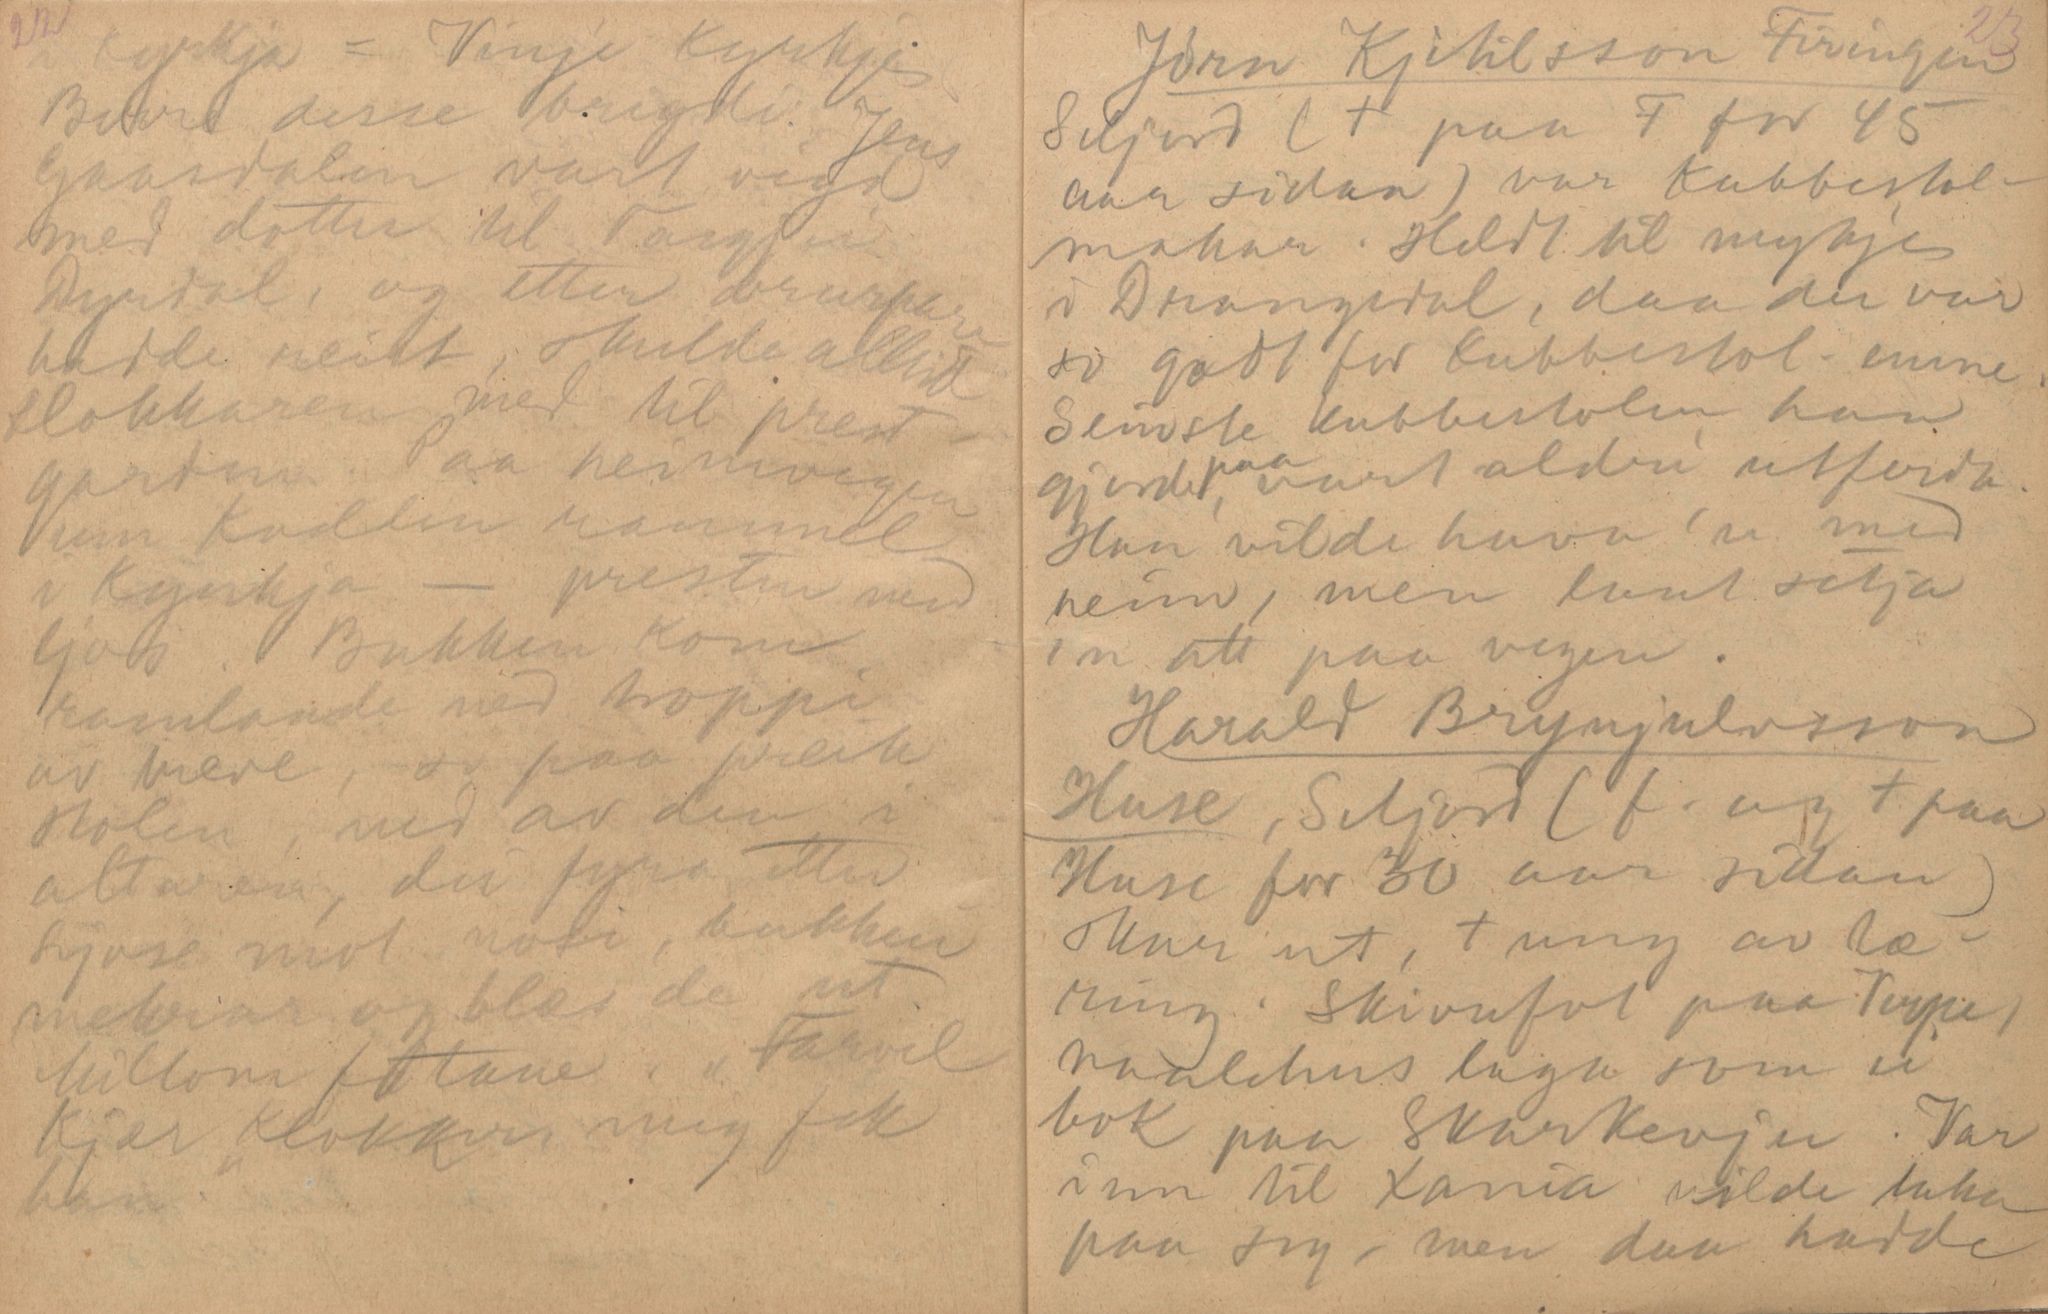 22
i Kyrkja = Vinje Kyrkje
desse Jens
Gaasdalen vart vigd
med dotter til Targjei
Dyrdal, og etter brurpare
hadde reist, skulde alltid
klokkaren med til prest-
garden. Paa heimvegen
um Kvellen rammel
i Kyrkja — presten med
ljos. Bukken kom
ramlande ned troppi
av , so paa preik
stolen, ned av den, i
altaren, dei fyra etter
Ljose mot nosi, bukken
og blæs de ut
millom føtane. "Farvel
Kjær Klokker" meg fek
han.
23
Jørn Kjetilsson Firingen
Seljord († paa F for 45
aar sidan) var Kubbestol-
makar. Heldt til mykje
i Drangedal, daa der var
so godt for Kubbestol-emne.
Seinste Kubbestolen han
gjorde paa, vart aldri utferda.
Han vilde hava 'n med
heim, men laut setja
'n att paa vegen.
Harald Brynjulvsson
Huse, Seljord (f. og † paa
Huse for 30 aar sidan)
skar ut, † ung av tæ-
ring. Skivufot paa Turpe,
naalehus laga som ei
bok paa Skarkevju. Var
inn til Xania vilde taka
paa seg, men daa hadde